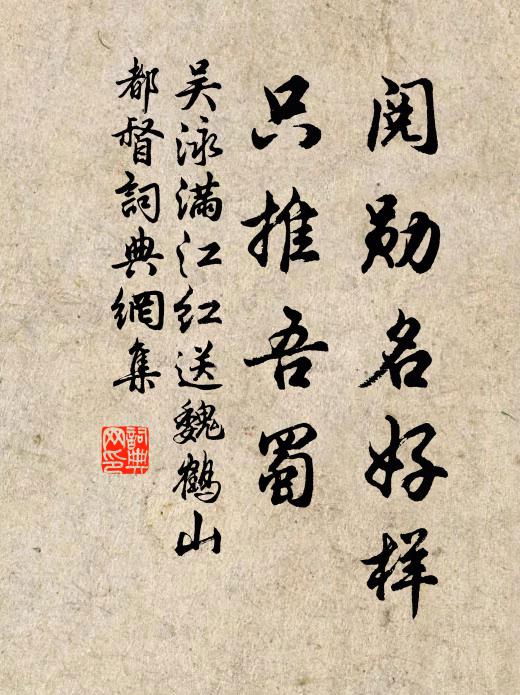 阅勋名好样
只推吾蜀
吴泳满江红送魏鹤山
都督詞典網集
詞典网印